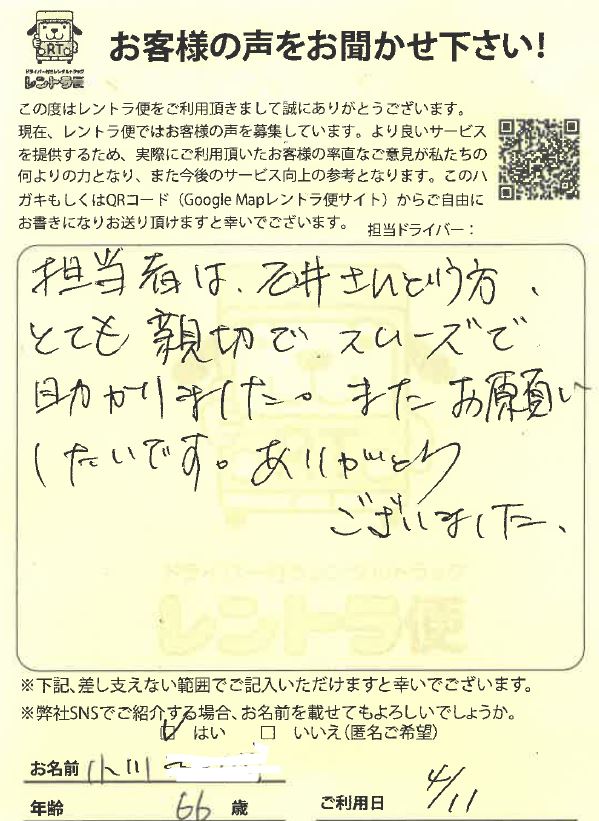 RTC
ドライバー付きレンタルトラック
レントラ便
お客様の声をお聞かせ下さい！
この度はレントラ便をご利用頂きまして誠にありがとうございます。
現在、レントラ便ではお客様の声を募集しています。より良いサービス
を提供するため、実際にご利用頂いたお客様の率直なご意見が私たちの
何よりの力となり、また今後のサービス向上の参考となります。このハ
ガキもしくはQRコード（Google Mapレントラ便サイト）からご自由に
お書きになりお送り頂けますと幸いでございます。
担当ドライバー：
担当者は、石井さんという方、
とても親切でスムーズで
助かりました。またお願い
したいです。ありがとう
ございました、
ドライバー付きレンタルトラック
レントラ便
※下記、差し支えない範囲でご記入いただけますと幸いでございます。
※弊社SNSでご紹介する場合、お名前を載せてもよろしいでしょうか。
☑ はい □ いいえ（匿名ご希望）
お名前 小川
年齢 66 歳 ご利用日 4/11